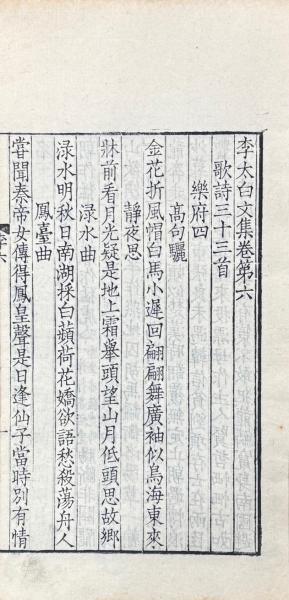 李太白文集卷第六
歌詩三十三首
樂府四
高句驪
金花折風帽白馬小遲回翩翩舞廣袖似鳥海東來
靜夜思
牀前看月光疑是地上霜舉頭望山月低頭思故鄉
渌水曲
渌水明秋日南湖採白蘋荷花嬌欲語愁殺蕩舟人
鳳臺曲
甞聞秦帝女傳得鳳皇聲是日逢仙子當時別有情